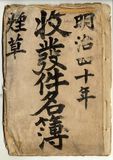 明治四十年
收發件名簿
煙草